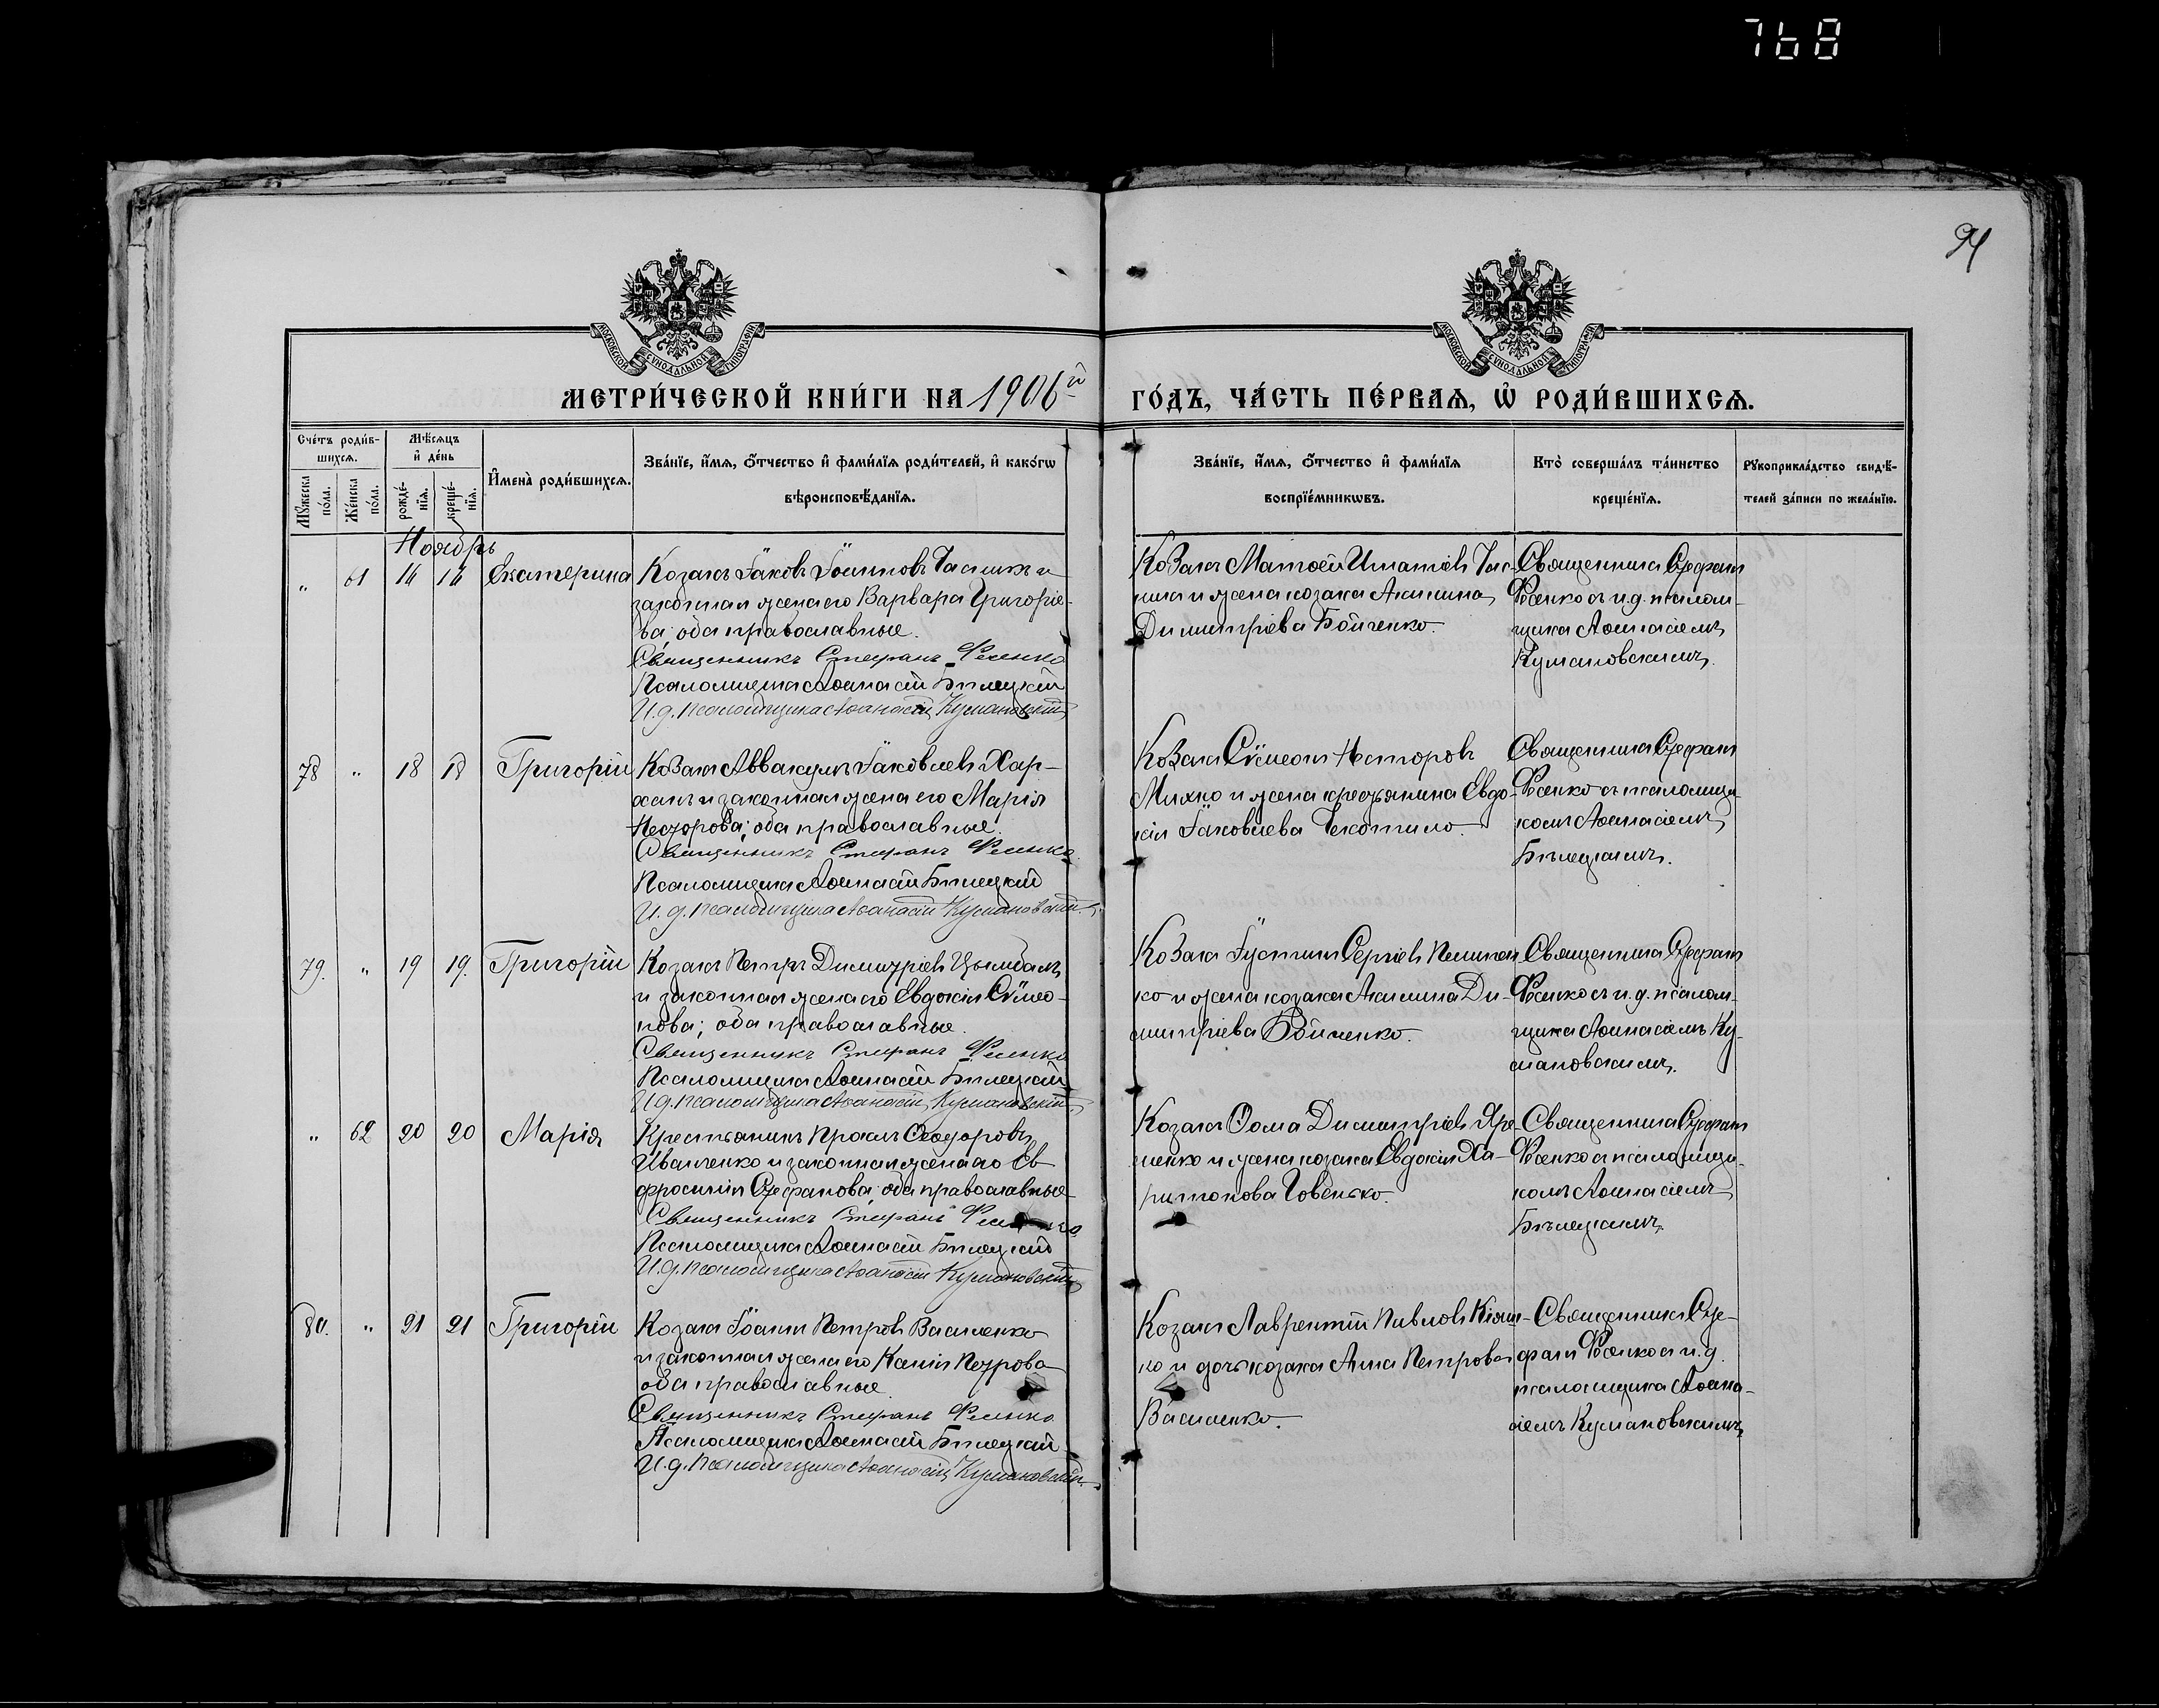 768
94
МОСКОВСКОЙ СѴНОДАЛЬНОЙ ТИПОГРАФІИ
МОСКОВСКОЙ СѴНОДАЛЬНОЙ ТИПОГРАФІИ
МЕТРИ́ЧЕСКОЙ КНИ́ГИ НА 1906й ГО́ДЪ, ЧА́СТЬ ПЕ́РВАЯ, Ѡ РОДИ́ВШИХСЯ.
Сче́тъ роди́в-
шихся.
Мѣ́сяцъ
и де́нь
Имена̀ роди́вшихся.
Зва́нїе, и́мя, о́тчество и фами́лїя роди́телей, и како́гѡ
вѣроисповѣ́данїя.
Зва́нїе, и́мя, о́тчество и фами́лїя
воспрїе́мникѡвъ.
Кто̀ соверша́лъ та́инство
креще́нїя.
Рꙋкоприкла́дство свидѣ́-
телей за́писи по жела́нїю.
Мꙋ́жеска
по́ла.
Же́нска
по́ла.
рожде́-
нїя.
креще́-
нїя.
Ноябрь
" 61 14 14 Екатерина
Козакъ Іаковъ Іоанновъ и
законная жена его Варвара Григорие-
ва; оба православные.
Священникъ Стефанъ Фесенко
Псаломщикъ Аѳанасій Билецкій
И.д. псаломщика Аѳанасій Кумановскій
Козакъ Матѳей Игнатіевъ
и жена козака Акилина
Димитріева Бойченко.
Священникъ Стефанъ
Фесенко съ и.д. псалом-
щика Аѳанасіемъ
Кумановскимъ.
78 " 18 18 Григорій
Козакъ Аввакумъ Іаковлевъ Хар-
и законная жена его Марія
Несторова; оба православные.
Священникъ Стефанъ Фесенко
Псаломщикъ Аѳанасій Билецкій
И.д. псаломщика Аѳанасій Кумановскій
Козакъ Сѵмеонъ Несторовъ
Михно и жена крестьянина Евдо-
кія Іаковлева
Священникъ Стефанъ
Фесенко съ псаломщи-
комъ Аѳанасіемъ
Билецкимъ.
79. " 19 19. Григорій
Козакъ Петръ Димитріевъ Цымбалъ
и законная жена его Евдокія Сѵмео-
нова; оба православные.
Священникъ Стефанъ Фесенко
Псаломщикъ Аѳанасій Билецкій
И.д. псаломщика Аѳанасій Кумановскій
Козакъ Іустинъ Сергіевъ
ко и жена козака Акилина Ди-
митріева Бойченко.
Священникъ Стефанъ
Фесенко съ и.д. псалом-
щика Аѳанасіемъ Ку-
мановскимъ.
" 62 20 20 Марія
Крестьянинъ Ѳеодоровъ
Иванченко и законная жена его Ев-
фросинія Стефанова; оба православные
Священникъ Стефанъ Фесенко
Псаломщикъ Аѳанасій Билецкій
И.д. псаломщика Аѳанасій Кумановскій
Козакъ Ѳома Димитріевъ Яре-
менко и жена козака Евдокія Ха-
ритонова
Священникъ Стефанъ
Фесенко съ псаломщи-
комъ Аѳанасіемъ
Билецкимъ.
80. " 21 21 Григорій
Козакъ Іоаннъ Петровъ Василенко
и законная жена его Ксенія Петрова
оба православные.
Священникъ Стефанъ Фесенко
Псаломщикъ Аѳанасій Билецкій
И.д. псаломщика Аѳанасій Кумановскій
Козакъ Лаврентій Павловъ
ко и дочь козака Анна Петрова
Василенко.
Священникъ Сте-
фанъ Фесенко съ и.д.
псаломщика Аѳана-
сіемъ Кумановскимъ